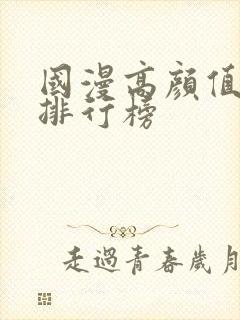 國漫高顔值
排行榜
走過青春歲月